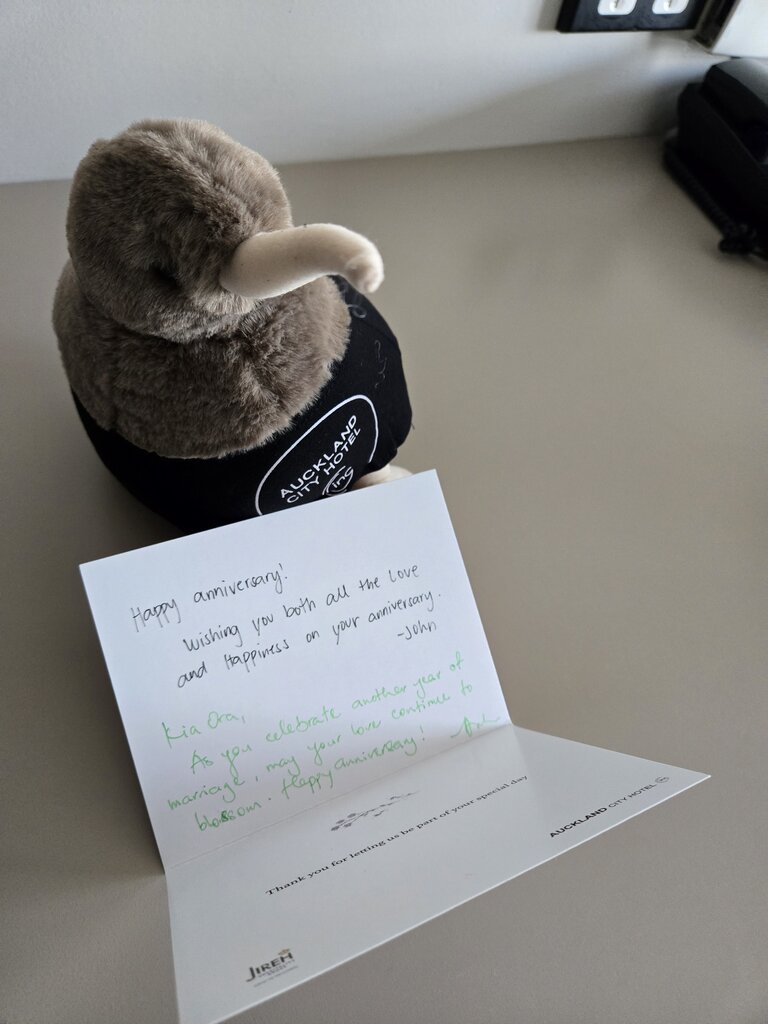 AUCKLAND
CITY HOTEL
Happy anniversary!
Wishing you both all the love
and Happiness on your anniversary.
-John
Kia Ora,
As you celebrate another year of
marriage, may your love continue to
blossom. Happy anniversary!
Thank you for letting us be part of your special day
AUCKLAND CITY HOTEL
JIREH